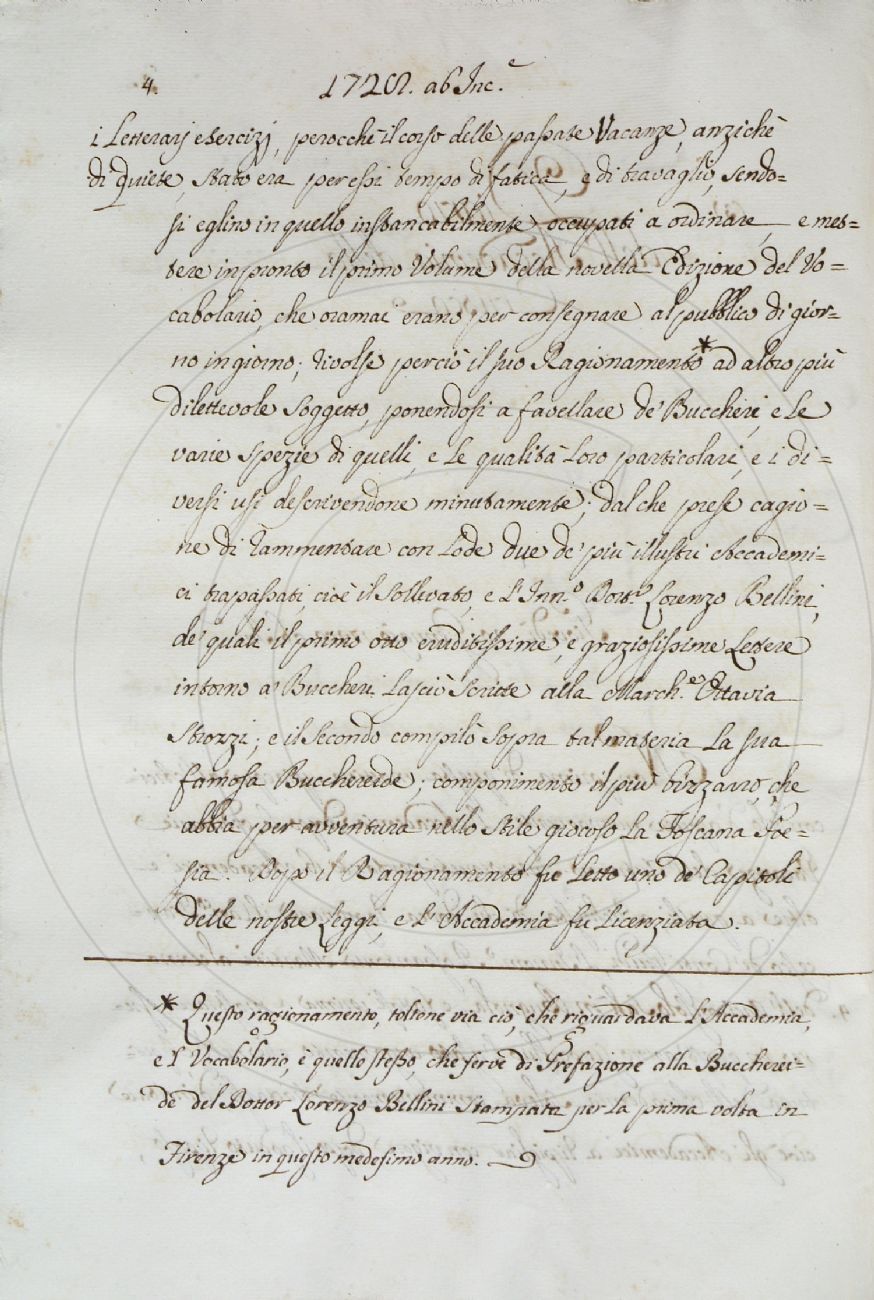 4. 1728. ab Inc.e
i Letterarj esercizj, perocchè il corso delle passate Vacanze, anzichè
di quiete, stato era per essi tempo di fatica, e di travaglio, sendo=
si eglino in quello instancabilmente occupati a ordinare, e met=
tere in pronto il primo Volume della novella Edizione del Vo=
cabolario, che oramai erano per consegnare al pubblico di gior=
no in giorno; rivolse perciò il suo Ragionamento* ad altro più
dilettevole soggetto, ponendosi a favellare de' Buccheri, e le
varie spezie di quelli, e le qualità loro particolari, e i di=
versi usi descrivendone minutamente; dal che prese cagio=
ne di rammentare con lode due de' più illustri Accademi=
ci trapassati, cioè il Sollevato, e l'Inn.o Dott.r Lorenzo Bellini,
de' quali il primo otto eruditissime, e graziosissime Lettere
intorno a' Buccheri lasciò scritte alla March.a Ottavia
Strozzi; e il secondo compilò sopra tal materia la sua
famosa Buccherede; componimento il più bizzarro, che
abbia per avventura nello stile giocoso la Toscana Poe=
sia. Dopo il Ragionamento fu letto uno de' Capitoli
delle nostre Leggi, e l'Accademia fu licenziata.
* Questo ragionamento, toltone via ciò, che riguardava l'Accademia,
e 'l Vocabolario, è quello stesso, che serve di Prefazione alla Buccherei=
de del Dottor Lorenzo Bellini stampata per la prima volta in
Firenze in questo medesimo anno.